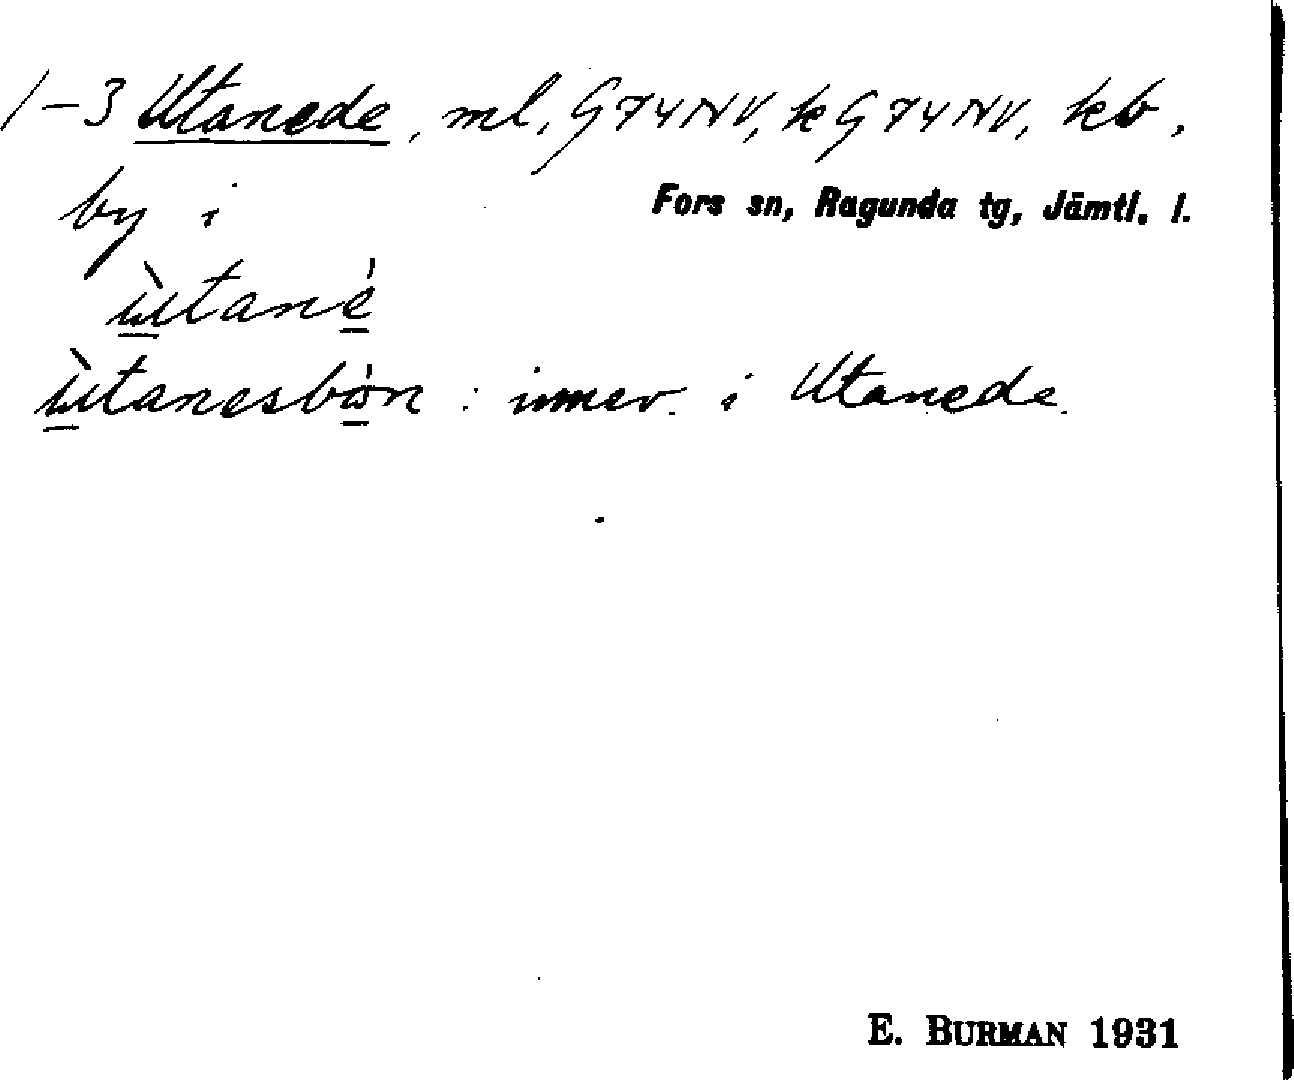 1-3 Utanede, ml, G74NV, k G74NV, kb,
by i Fors sn, Ragunda tg, Jämtl. l.
ùtané
ùtanesbòn : inner. i Utanede.
E. BURMAN 1931